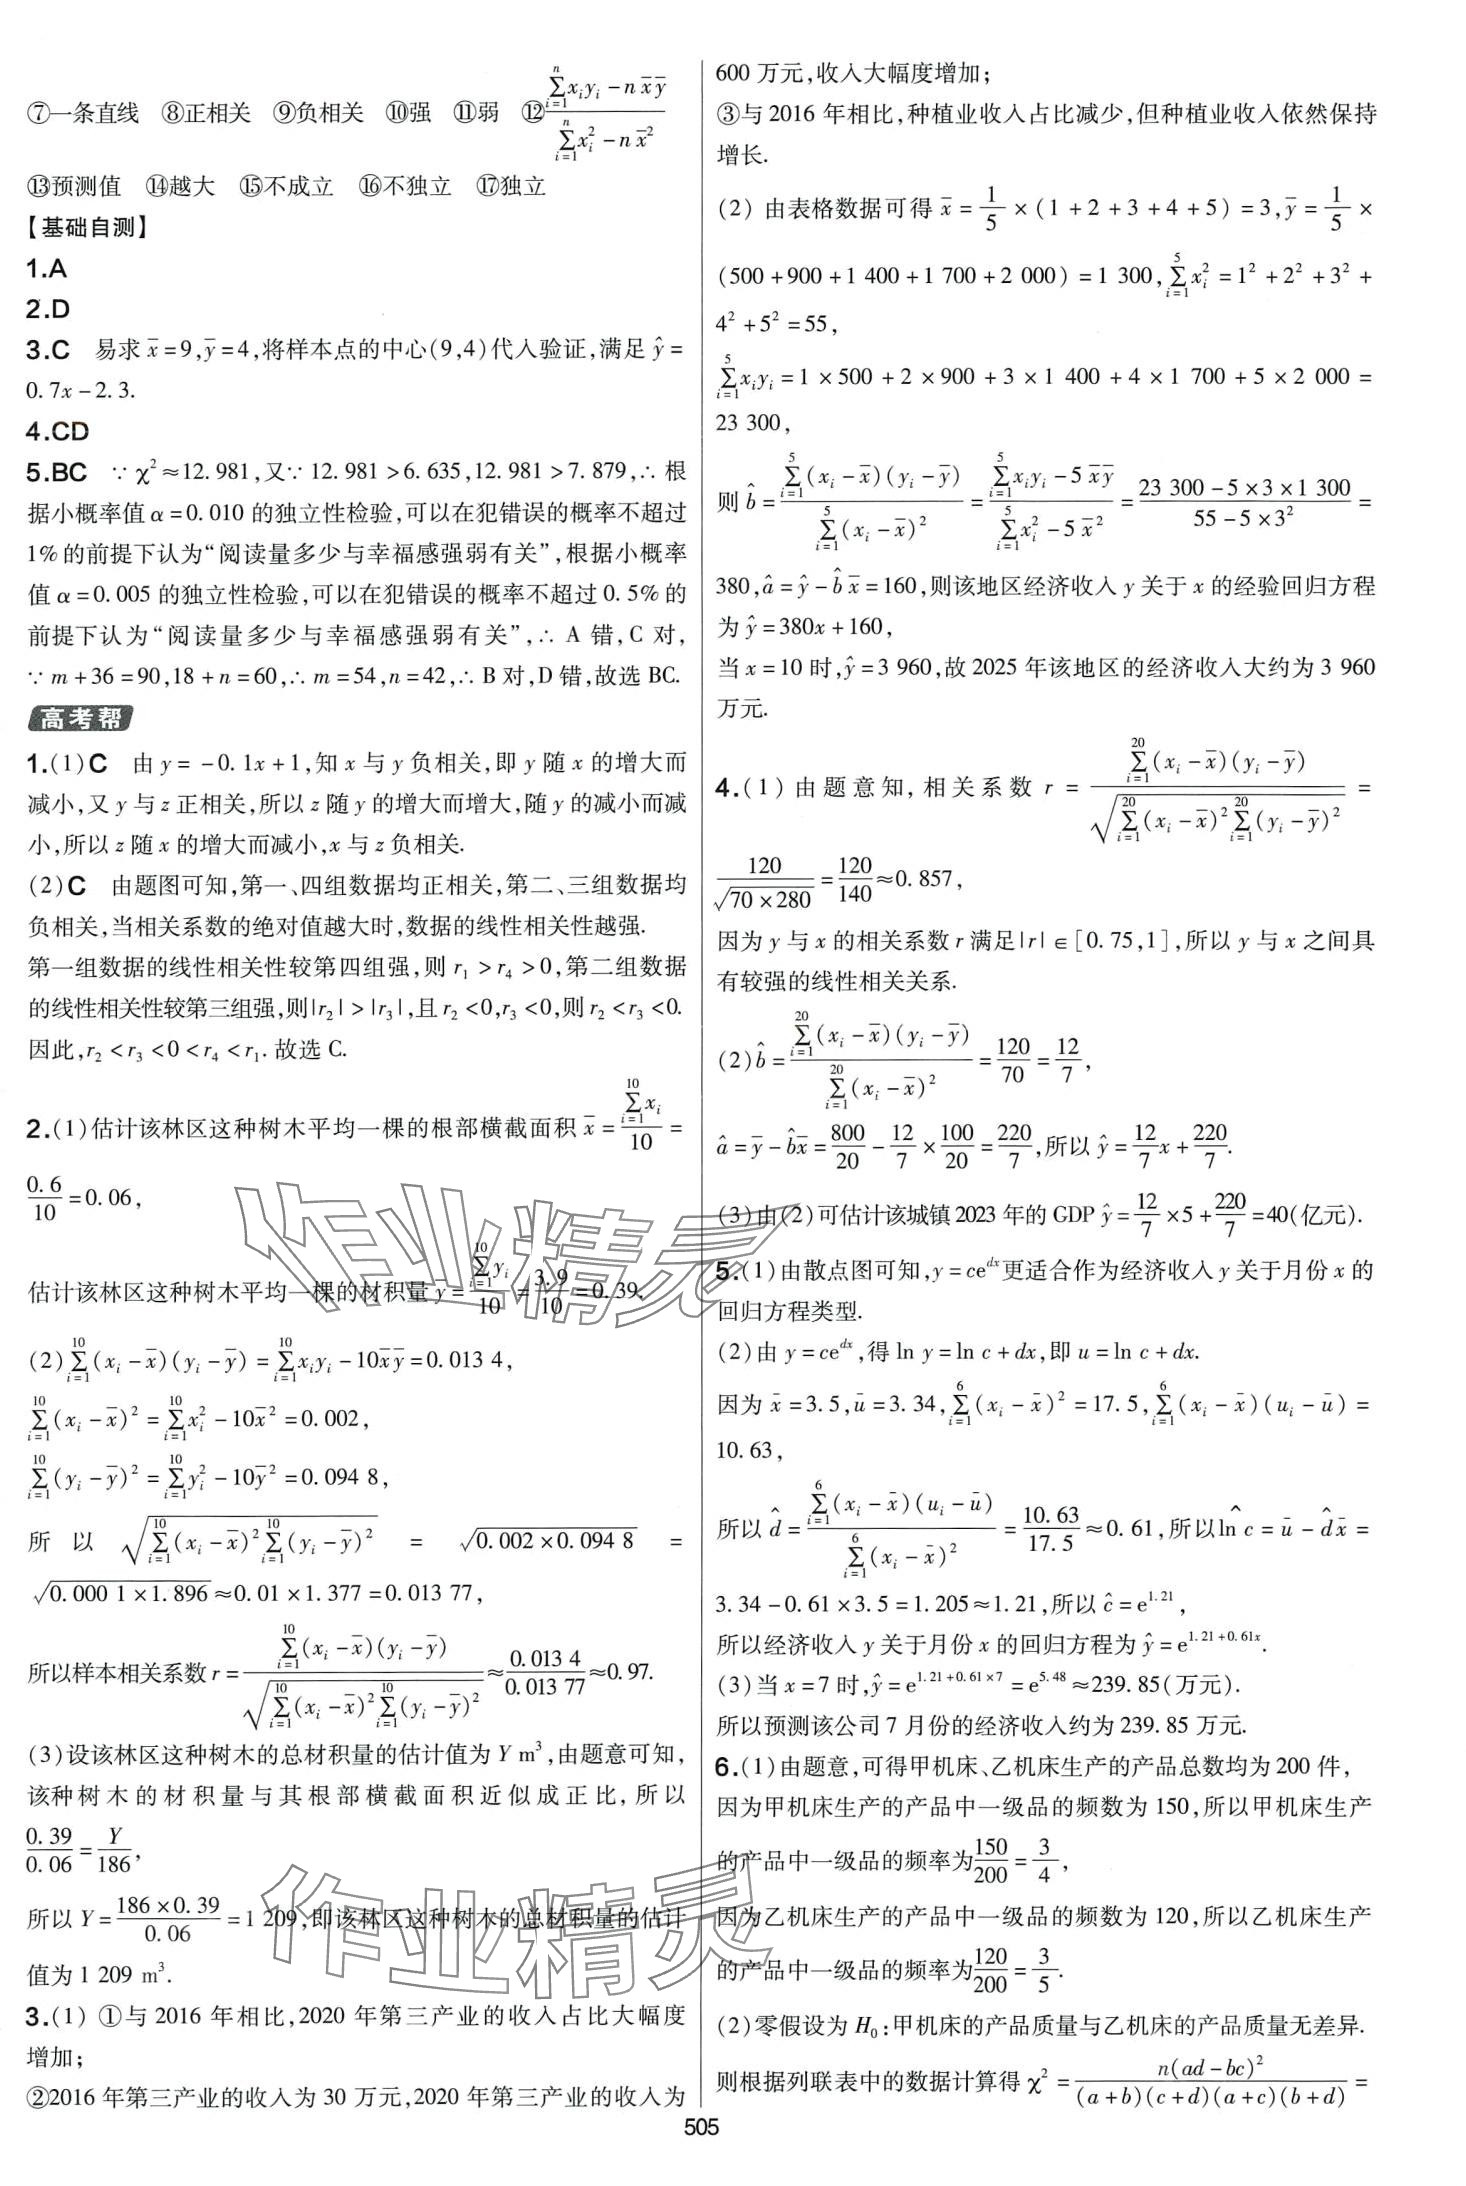 ⑦一条直线 ⑧正相关 ⑨负相关 ⑩强 ⑪弱 ⑫ $\frac{\sum_{i=1}^{n}x_iy_i-n\bar{x}\bar{y}}{\sum_{i=1}^{n}x_i^2-n\bar{x}^2}$
⑬预测值 ⑭越大 ⑮不成立 ⑯不独立 ⑰独立
【基础自测】
1.A
2.D
3.C 易求 $\bar{x}=9,\bar{y}=4$,将样本点的中心(9,4)代入验证,满足 $\hat{y}=$
0.7x-2.3.
4.CD
5.BC ∵χ²≈12.981,又∵12.981>6.635,12.981>7.879,∴根
据小概率值α=0.010的独立性检验,可以在犯错误的概率不超过
1%的前提下认为“阅读量多少与幸福感强弱有关”,根据小概率
值α=0.005的独立性检验,可以在犯错误的概率不超过0.5%的
前提下认为“阅读量多少与幸福感强弱有关”,∴A错,C对,
∵m+36=90,18+n=60,∴m=54,n=42,∴B对,D错,故选BC.
高考帮
1.(1)C 由y=-0.1x+1,知x与y负相关,即y随x的增大而
减小,又y与z正相关,所以z随y的增大而增大,随y的减小而减
小,所以z随x的增大而减小,x与z负相关.
(2)C 由题图可知,第一、四组数据均正相关,第二、三组数据均
负相关,当相关系数的绝对值越大时,数据的线性相关性越强.
第一组数据的线性相关性较第四组强,则 $r_1>r_4>0$,第二组数据
的线性相关性较第三组强,则 $|r_2|>|r_3|$,且 $r_2<0,r_3<0$,则 $r_2<r_3<0$.
因此,$r_2<r_3<0<r_4<r_1$.故选C.
2.(1)估计该林区这种树木平均一棵的根部横截面积 $\bar{x}=\frac{\sum_{i=1}^{10}x_i}{10}=$
$\frac{0.6}{10}=0.06$,
估计该林区这种树木平均一棵的材积量 $\bar{y}=\frac{\sum_{i=1}^{10}y_i}{10}=\frac{3.9}{10}=0.39$.
(2) $\sum_{i=1}^{10}(x_i-\bar{x})(y_i-\bar{y})=\sum_{i=1}^{10}x_iy_i-10\bar{x}\bar{y}=0.013 4$,
$\sum_{i=1}^{10}(x_i-\bar{x})^2=\sum_{i=1}^{10}x_i^2-10\bar{x}^2=0.002$,
$\sum_{i=1}^{10}(y_i-\bar{y})^2=\sum_{i=1}^{10}y_i^2-10\bar{y}^2=0.094 8$,
所以 $\sqrt{\sum_{i=1}^{10}(x_i-\bar{x})^2\sum_{i=1}^{10}(y_i-\bar{y})^2}=\sqrt{0.002×0.094 8}=$
$\sqrt{0.000 1×1.896}≈0.01×1.377=0.013 77$,
所以样本相关系数 $r=\frac{\sum_{i=1}^{10}(x_i-\bar{x})(y_i-\bar{y})}{\sqrt{\sum_{i=1}^{10}(x_i-\bar{x})^2\sum_{i=1}^{10}(y_i-\bar{y})^2}}≈\frac{0.013 4}{0.013 77}≈0.97$.
(3)设该林区这种树木的总材积量的估计值为Y m³,由题意可知,
该种树木的材积量与其根部横截面积近似成正比,所以
$\frac{0.39}{0.06}=\frac{Y}{186}$,
所以 $Y=\frac{186×0.39}{0.06}=1 209$,即该林区这种树木的总材积量的估计
值为1 209 m³.
3.(1) ①与2016年相比,2020年第三产业的收入占比大幅度
增加;
②2016年第三产业的收入为30万元,2020年第三产业的收入为
600万元,收入大幅度增加;
③与2016年相比,种植业收入占比减少,但种植业收入依然保持
增长.
(2) 由表格数据可得 $\bar{x}=\frac{1}{5}×(1+2+3+4+5)=3,\bar{y}=\frac{1}{5}×$
(500+900+1 400+1 700+2 000)=1 300,$\sum_{i=1}^{5}x_i^2=1^2+2^2+3^2+$
$4^2+5^2=55$,
$\sum_{i=1}^{5}x_iy_i=1×500+2×900+3×1 400+4×1 700+5×2 000=$
23 300,
则 $\hat{b}=\frac{\sum_{i=1}^{5}(x_i-\bar{x})(y_i-\bar{y})}{\sum_{i=1}^{5}(x_i-\bar{x})^2}=\frac{\sum_{i=1}^{5}x_iy_i-5\bar{x}\bar{y}}{\sum_{i=1}^{5}x_i^2-5\bar{x}^2}=\frac{23 300-5×3×1 300}{55-5×3^2}=$
380,$\hat{a}=\hat{y}-\hat{b}\bar{x}=160$,则该地区经济收入y关于x的经验回归方程
为 $\hat{y}=380x+160$,
当x=10时,$\hat{y}=3 960$,故2025年该地区的经济收入大约为3 960
万元.
4.(1) 由题意知,相关系数 $r=\frac{\sum_{i=1}^{20}(x_i-\bar{x})(y_i-\bar{y})}{\sqrt{\sum_{i=1}^{20}(x_i-\bar{x})^2\sum_{i=1}^{20}(y_i-\bar{y})^2}}=$
$\frac{120}{\sqrt{70×280}}=\frac{120}{140}≈0.857$,
因为y与x的相关系数r满足|r|∈[0.75,1],所以y与x之间具
有较强的线性相关关系.
(2) $\hat{b}=\frac{\sum_{i=1}^{20}(x_i-\bar{x})(y_i-\bar{y})}{\sum_{i=1}^{20}(x_i-\bar{x})^2}=\frac{120}{70}=\frac{12}{7}$,
$\hat{a}=\bar{y}-\hat{b}\bar{x}=\frac{800}{20}-\frac{12}{7}×\frac{100}{20}=\frac{220}{7}$,所以 $\hat{y}=\frac{12}{7}x+\frac{220}{7}$.
(3)由(2)可估计该城镇2023年的GDP $\hat{y}=\frac{12}{7}×5+\frac{220}{7}=40$(亿元).
5.(1)由散点图可知,$y=ce^{dx}$更适合作为经济收入y关于月份x的
回归方程类型.
(2)由 $y=ce^{dx}$,得ln y=ln c+dx,即u=ln c+dx.
因为 $\bar{x}=3.5,\bar{u}=3.34,\sum_{i=1}^{6}(x_i-\bar{x})^2=17.5,\sum_{i=1}^{6}(x_i-\bar{x})(u_i-\bar{u})=$
10.63,
所以 $\hat{d}=\frac{\sum_{i=1}^{6}(x_i-\bar{x})(u_i-\bar{u})}{\sum_{i=1}^{6}(x_i-\bar{x})^2}=\frac{10.63}{17.5}≈0.61$,所以 $\widehat{\ln c}=\bar{u}-\hat{d}\bar{x}=$
3.34-0.61×3.5=1.205≈1.21,所以 $\hat{c}=e^{1.21}$,
所以经济收入y关于月份x的回归方程为 $\hat{y}=e^{1.21+0.61x}$.
(3)当x=7时,$\hat{y}=e^{1.21+0.61×7}=e^{5.48}≈239.85$(万元).
所以预测该公司7月份的经济收入约为239.85万元.
6.(1)由题意,可得甲机床、乙机床生产的产品总数均为200件,
因为甲机床生产的产品中一级品的频数为150,所以甲机床生产
的产品中一级品的频率为 $\frac{150}{200}=\frac{3}{4}$,
因为乙机床生产的产品中一级品的频数为120,所以乙机床生产
的产品中一级品的频率为 $\frac{120}{200}=\frac{3}{5}$.
(2)零假设为 $H_0$:甲机床的产品质量与乙机床的产品质量无差异.
则根据列联表中的数据计算得 $χ^2=\frac{n(ad-bc)^2}{(a+b)(c+d)(a+c)(b+d)}=$
505
作业精灵
作业精灵